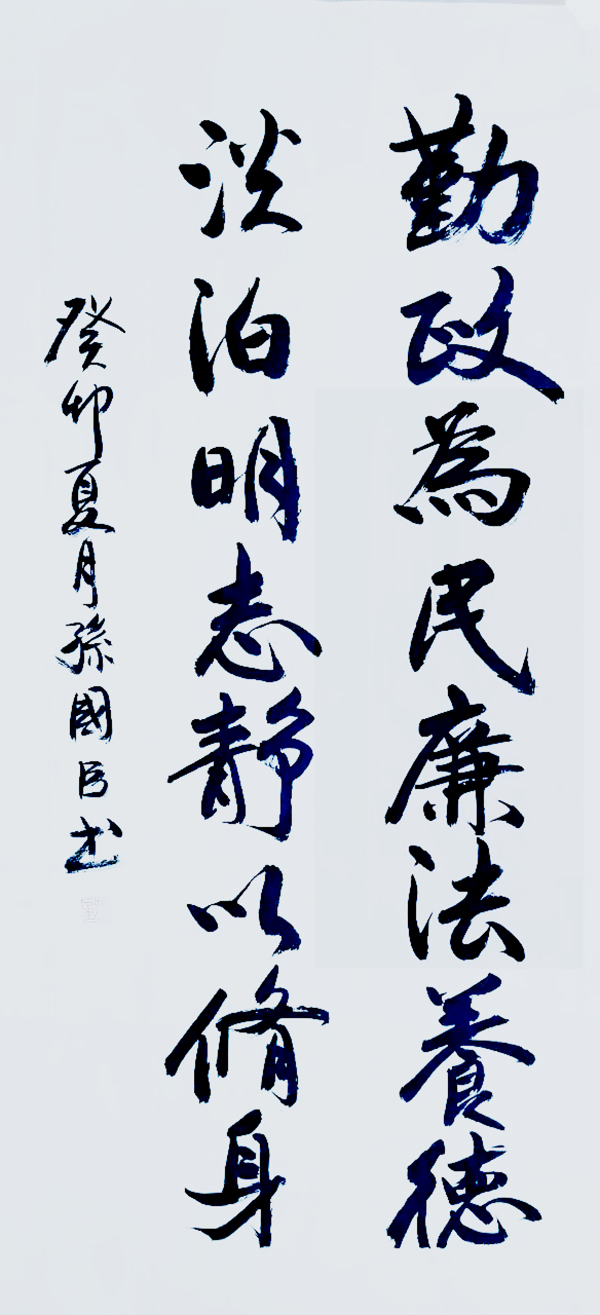 勤政為民廉法養德
淡泊明志靜以脩身
癸卯夏月孫國臣书